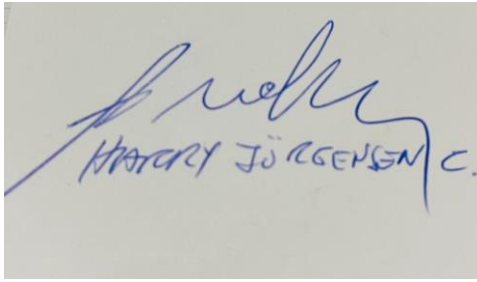 HARRY JÜRGENSEN C.